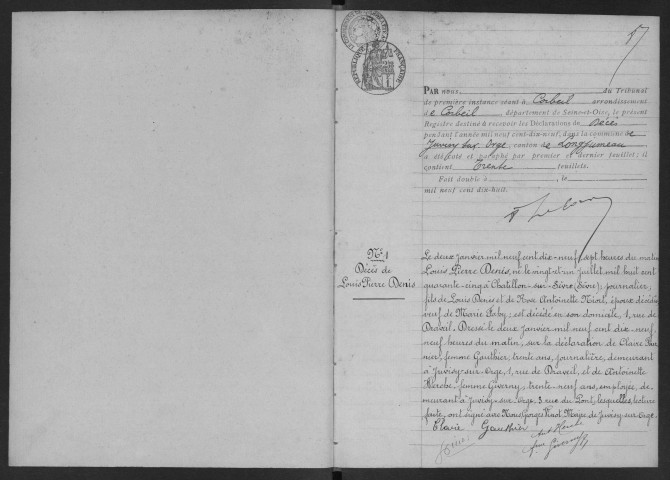 RÉPUBLIQUE FRANÇAISE
PAR nous, du Tribunal
de première instance séant à Corbeil arrondissement
de Corbeil, département de Seine-et-Oise, le présent
Registre destiné à recevoir les Déclarations de Décès
pendant l'année mil neuf cent dix-neuf, dans la commune de
Juvisy sur Orge, canton de Longjumeau
a été coté et paraphé par premier et dernier feuillet; il
contient Trente feuillets.
Fait double à , le
mil neuf cent dix-huit.
N° 1
Décès de
Louis Pierre Denis
Le deux Janvier mil neuf cent dix-neuf, sept heures du matin
Louis Pierre Denis, né le vingt-et-un Juillet mil huit cent
quarante-cinq à Chatillon-sur-Sèvre (Sèvre); journalier,
fils de Louis Denis et de Rose Antoinette Niort, époux décédés
veuf de Marie Faby; est décédé en son domicile, 1, rue de
Draveil. Dressé le deux Janvier mil neuf cent dix-neuf,
neuf heures du matin, sur la déclaration de Claire
femme Gauthier, trente ans, journalière, demeurant
à Juvisy-sur-Orge, 1, rue de Draveil, et de Antoinette
femme Giverny, trente-neuf ans, employée, de-
meurant à Juvisy-sur-Orge, 3 rue du Pont, lesquelles, lecture
faite, ont signé avec Nous Maire de Juvisy-sur-Orge.
Gauthier